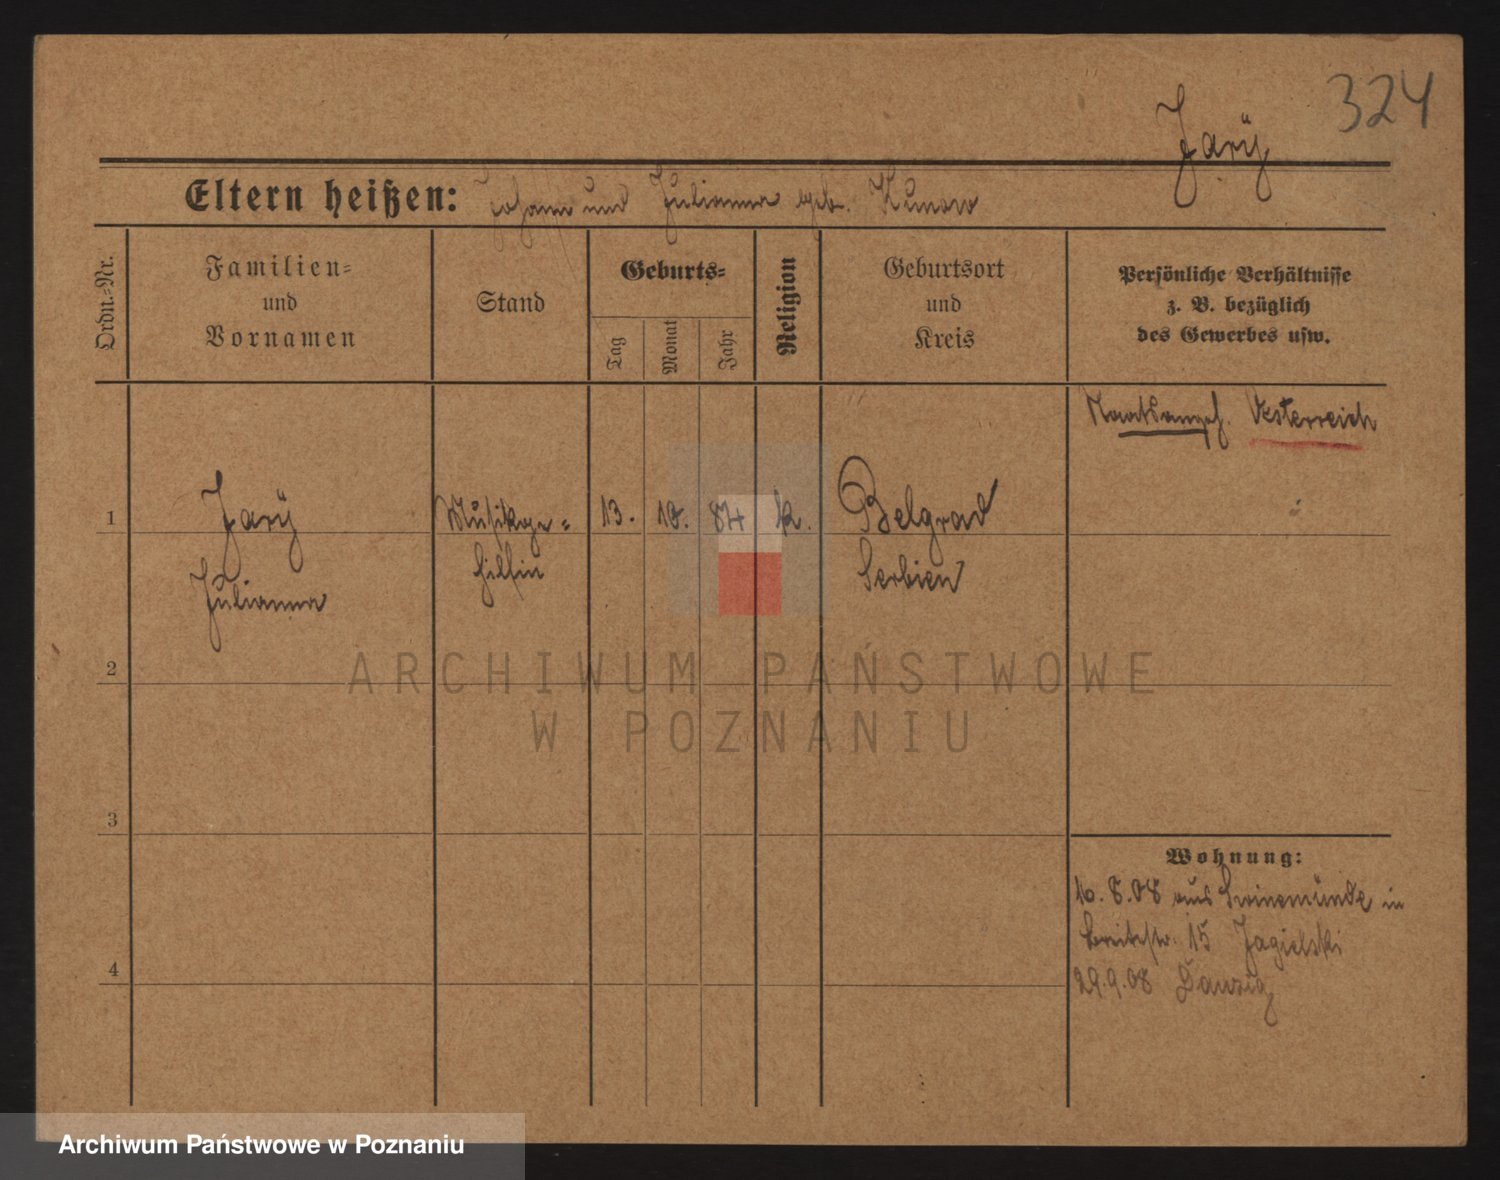 324
Jarÿ
Eltern heißen: Johann und Julianna geb. Kunaro
Ordn.-Nr.
Familien-
und
Vornamen
Stand
Geburts-
Tag
Monat
Jahr
Religion
Geburtsort
und
Kreis
Persönliche Verhältnisse
z. B. bezüglich
des Gewerbes usw.
Staatsangeh. Oesterreich
1
Jarÿ
Julianna
Musikge-
hilfin
13.
10.
84
k.
Belgrad
Serbien
2
ARCHIWUM PAŃSTWOWE
W POZNANIU
3
Wohnung:
10.8.08 aus Swinemünde in
Breitestr. 15 Jagielski
4
29.9.08 Danzig
Archiwum Państwowe w Poznaniu